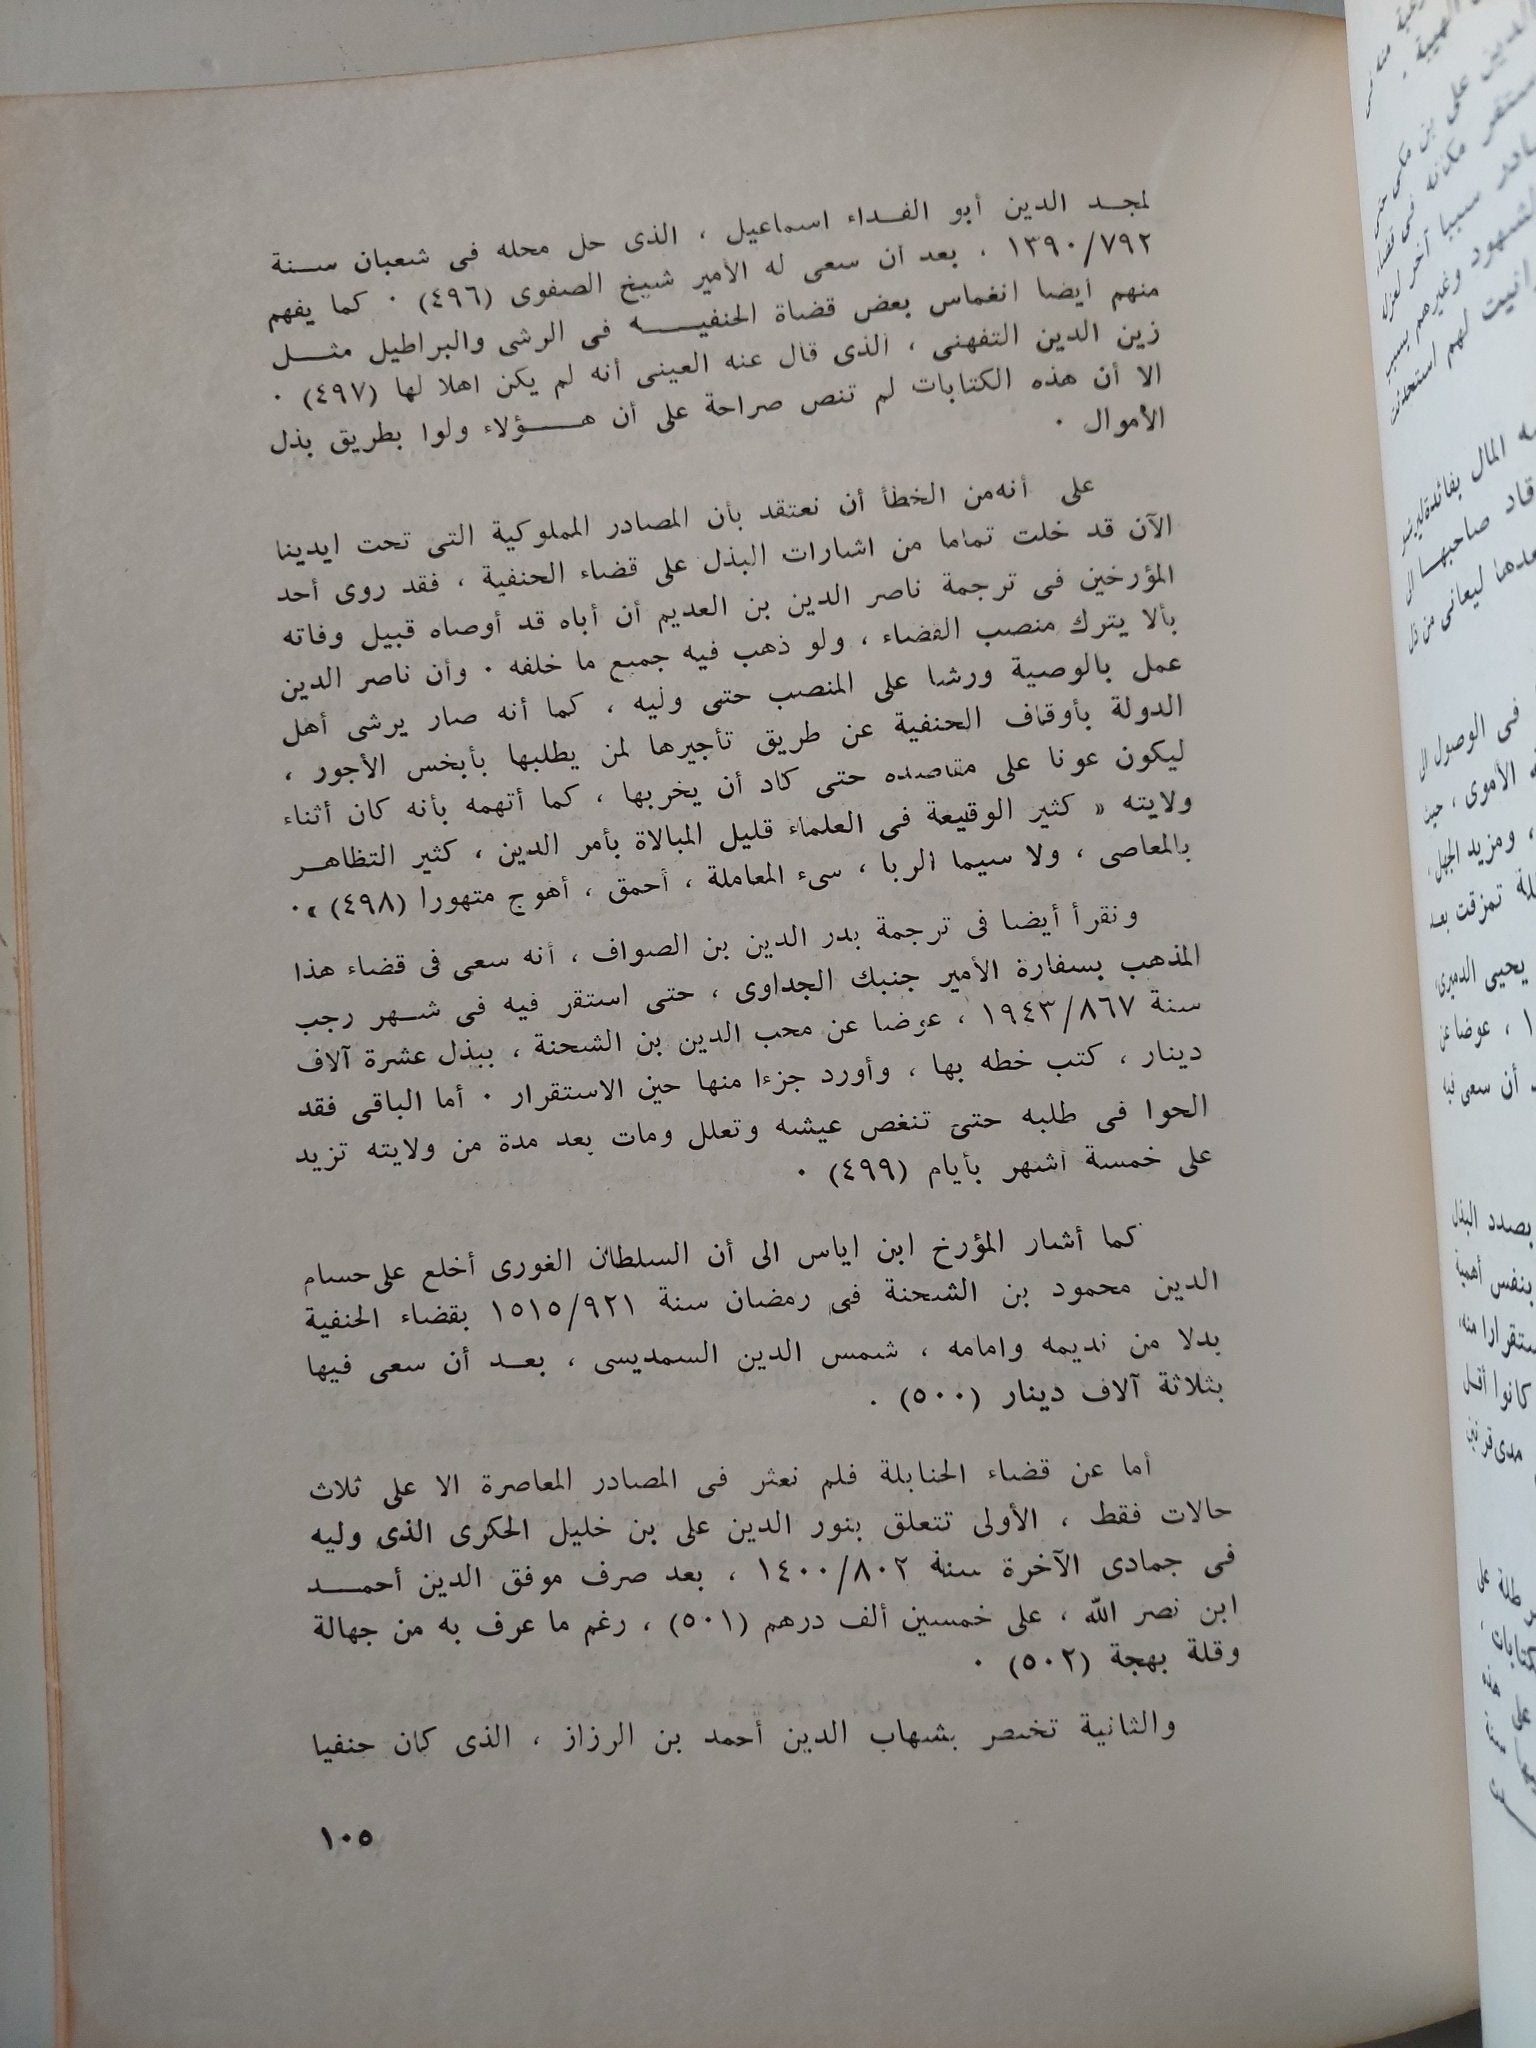 لمجد الدين أبو الفداء اسماعيل ، الذى حل محله فى شعبان سنة
١٣٩٠/٧٩٢ ، بعد أن سعى له الأمير شيخ الصفوى (٤٩٦) ٠ كما يفهم
منهم أيضا انغماس بعض قضاة الحنفيه فى الرشى والبراطيل مثل
زين الدين التفهنى ، الذى قال عنه العينى أنه لم يكن اهلا لها (٤٩٧) ٠
الا أن هذه الكتابات لم تنص صراحة على أن هؤلاء ولوا بطريق بذل
الأموال ٠
على أنه من الخطأ أن نعتقد بأن المصادر المملوكية التى تحت ايدينا
الآن قد خلت تماما من اشارات البذل على قضاء الحنفية ، فقد روى أحد
المؤرخين فى ترجمة ناصر الدين بن العديم أن أباه قد أوصاه قبيل وفاته
بألا يترك منصب القضاء ، ولو ذهب فيه جميع ما خلفه ٠ وأن ناصر الدين
عمل بالوصية ورشا على المنصب حتى وليه ، كما أنه صار يرشى أهل
الدولة بأوقاف الحنفية عن طريق تأجيرها لمن يطلبها بأبخس الأجور ،
ليكون عونا على مقاصده حتى كاد أن يخربها ، كما أتهمه بأنه كان أثناء
ولايته « كثير الوقيعة فى العلماء قليل المبالاة بأمر الدين ، كثير التظاهر
بالمعاصى ، ولا سيما الربا ، سىء المعاملة ، أحمق ، أهوج متهورا (٤٩٨) » ٠
ونقرأ أيضا فى ترجمة بدر الدين بن الصواف ، أنه سعى فى قضاء هذا
المذهب بسفارة الأمير جنبك الجداوى ، حتى استقر فيه فى شهر رجب
سنة ١٩٤٣/٨٦٧ ، عوضا عن محب الدين بن الشحنة ، ببذل عشرة آلاف
دينار ، كتب خطه بها ، وأورد جزءا منها حين الاستقرار ٠ أما الباقى فقد
الحوا فى طلبه حتى تنغص عيشه وتعلل ومات بعد مدة من ولايته تزيد
على خمسة أشهر بأيام (٤٩٩) ٠
كما أشار المؤرخ ابن اياس الى أن السلطان الغورى أخلع على حسام
الدين محمود بن الشحنة فى رمضان سنة ١٥١٥/٩٢١ بقضاء الحنفية
بدلا من نديمه وامامه ، شمس الدين السمديسى ، بعد أن سعى فيها
بثلاثة آلاف دينار (٥٠٠) ٠
أما عن قضاء الحنابلة فلم نعثر فى المصادر المعاصرة الا على ثلاث
حالات فقط ، الأولى تتعلق بنور الدين على بن خليل الحكرى الذى وليه
فى جمادى الآخرة سنة ١٤٠٠/٨٠٢ ، بعد صرف موفق الدين أحمد
ابن نصر الله ، على خمسين ألف درهم (٥٠١) ، رغم ما عرف به من جهالة
وقلة بهجة (٥٠٢) ٠
والثانية تختص بشهاب الدين أحمد بن الرزاز ، الذى كان حنفيا
١٠٥